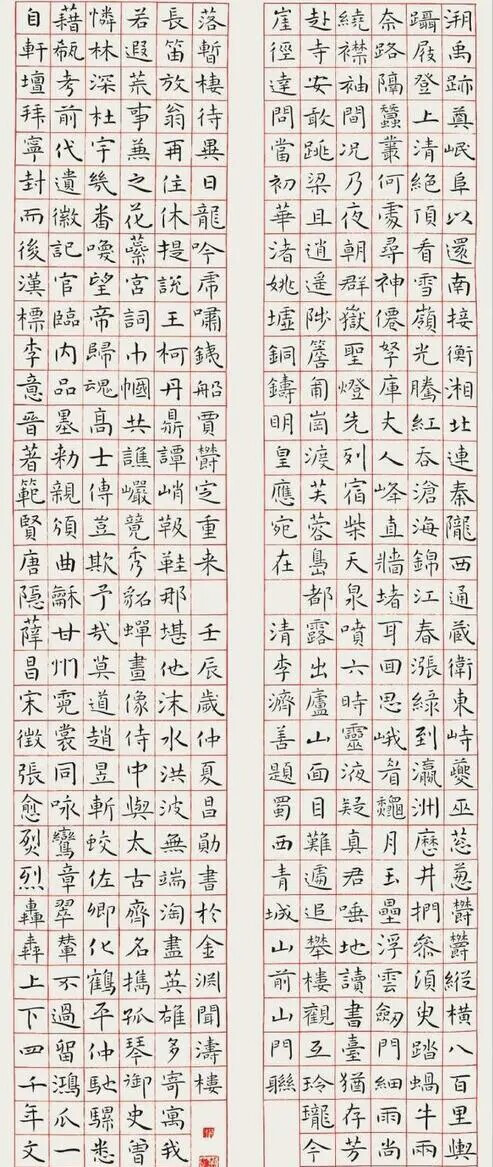 溯禹跡奠岷阜以還南接衡湘北連秦隴西通藏衛東峙夔巫葱葱鬱鬱縱橫八百里輿
躡屐登上清絕頂看雪嶺光騰紅吞滄海錦江春漲綠到瀛洲厯井捫參須臾踏蝸牛兩
奈路隔蠶叢何處尋神僊帑庫丈人峰直牆堵耳回思峨眉龝月玉壘浮雲劒門細雨尚
繞襟袖間況乃夜朝群嶽聖燈先列宿柴天泉噴六時靈液疑真君唾地讀書臺猶存芳
赴寺安敢跳梁且逍遙陟簷蔔崗渡芙蓉島都露出廬山面目難遽追攀樓觀互玲瓏今
崖徑達問當初華渚姚墟銅鑄明皇應宛在 清李濟善題蜀西青城山前山門聯
自軒壇拜寧封而後漢標李意晉著範賢唐隱薛昌宋徵張愈烮烈轟轟上下四千年文
藉瓻考前代遺徽記官臨內品墨勅親頒曲龢甘州霓裳同咏鸞章翠輦不過留鴻爪一
憐林深杜宇幾番喚望帝歸魂高士傳豈欺予哉莫道趙昱斬蛟佐卿化鶴平仲馳騾悉
若遐荒事兼之花蕊宮詞巾幗共譙巖競秀貂蟬畫像侍中與太古齊名攜孤琴御史曾
長笛放翁再住休提說王柯丹鼎譚峭靸鞋那堪他沫水洪波無端淘盡英雄多寄寓我
落暫棲待異日龍吟虎嘯鐵船賈鬱定重來 壬辰歲仲夏昌勛書於金淵聞濤樓